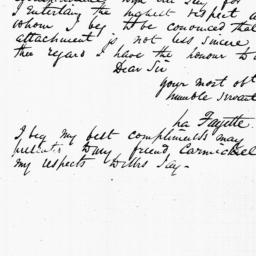 with
I Entertain the highest respect a
whom I beg to be convinced that
attachment is not less sincere
the regard I have the honour to
Dear Sir
your most obt
humble servant
La Fayette
I beg my best compliments may
presents to my friend Carmichael
my respects to Mrs Jay—